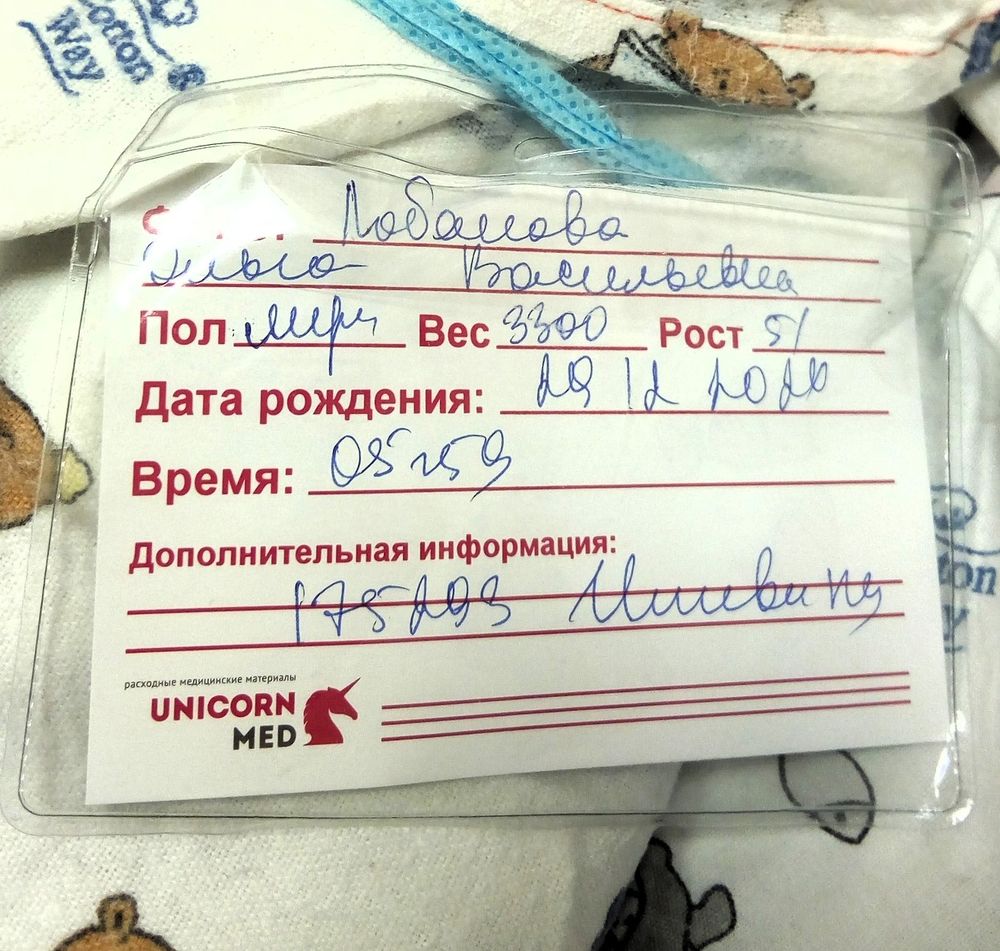 Cotton
Way
Лобанова
Ольга Васильевна
Пол: муж Вес 3300 Рост 51
Дата рождения: 29 12 2020
Время:
Дополнительная информация:
175293
расходные медицинские материалы
UNICORN
MED